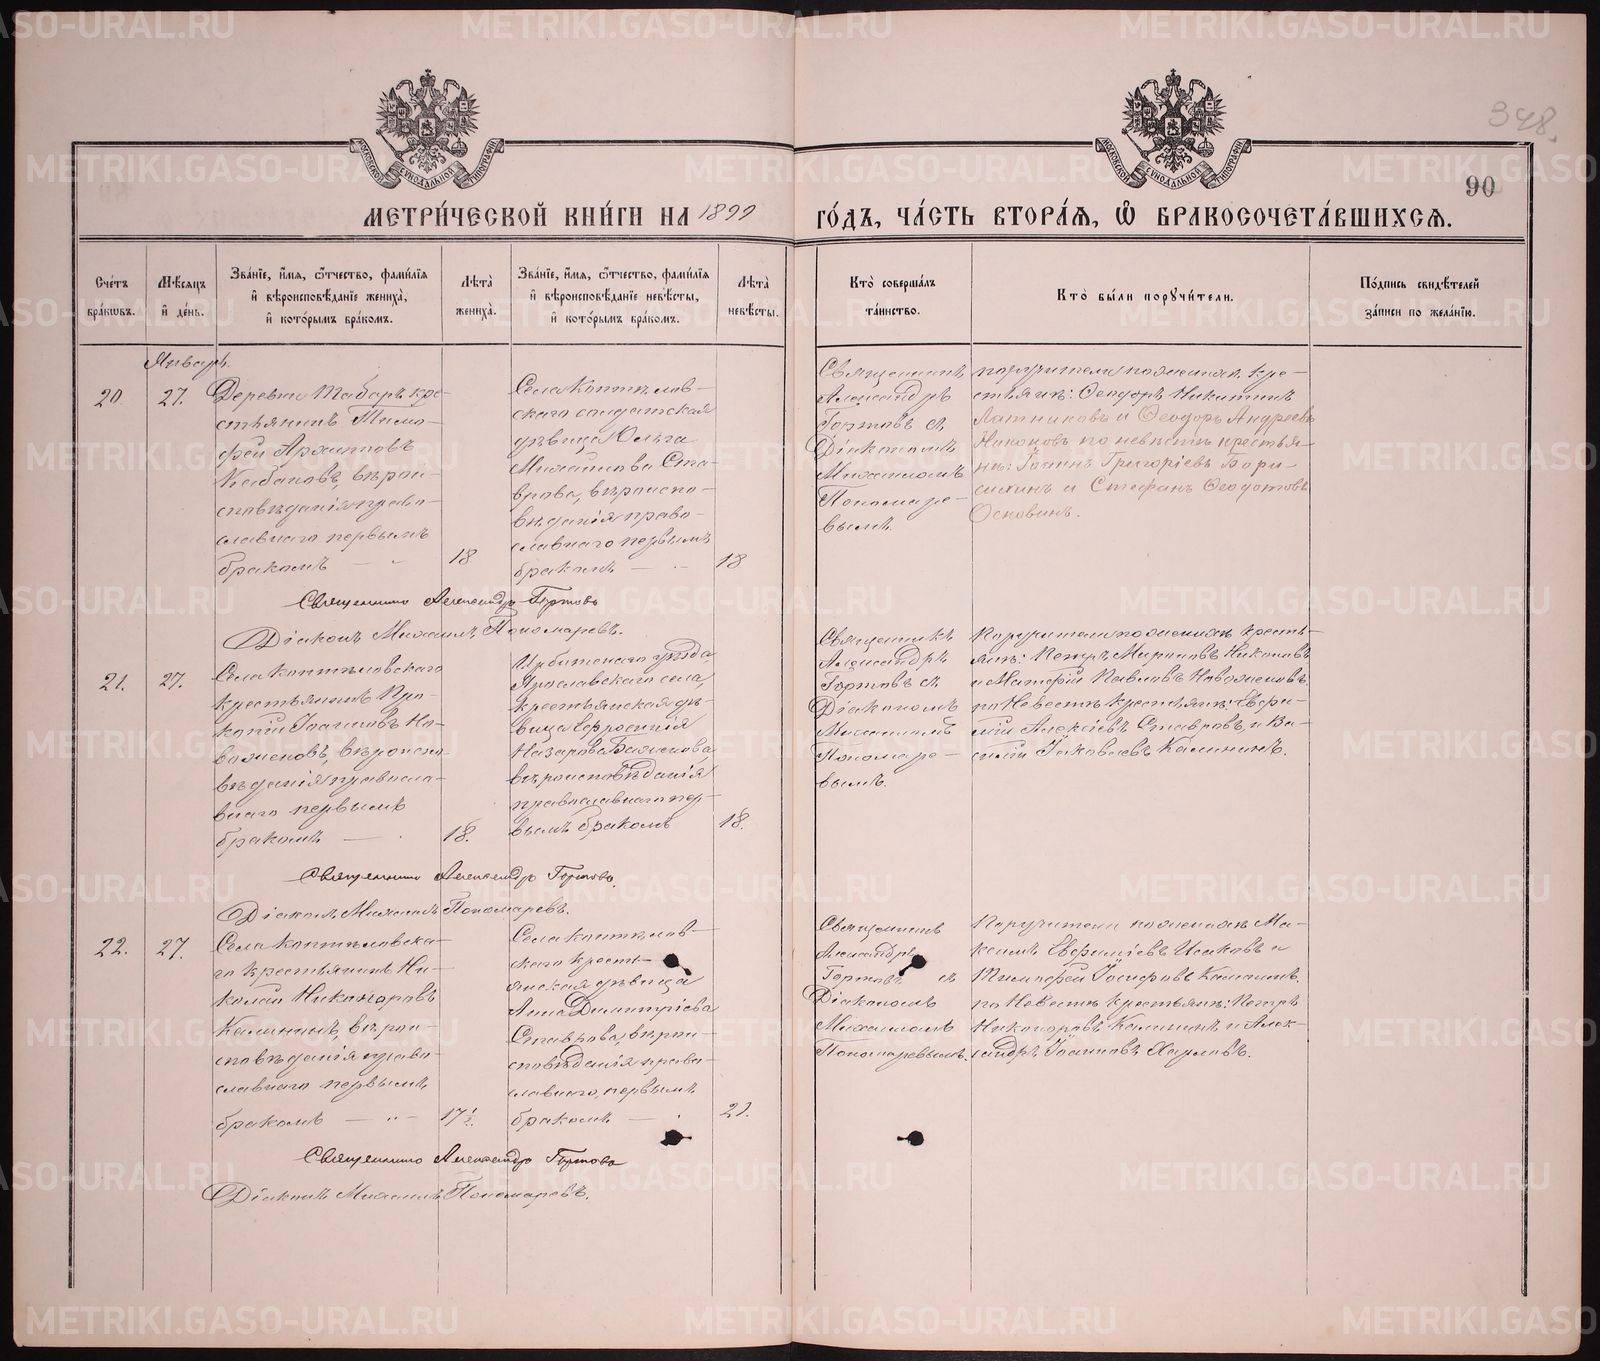 348.
90
МЕТРИ́ЧЕСКОЙ КНИ́ГИ НА 1899 ГО́ДЪ, ЧА́СТЬ ВТОРА́Ѧ, Ѽ БРАКОСОЧЕТА́ВШИХСѦ.
Сче́тъ бра́кѡвъ.
Мѣ́сѧцъ и҆ де́нь.
Зва́нїе, и҆́мѧ, ѻ҆́тчество, фами́лїѧ и҆ вѣроисповѣ́данїе жениха̀, и҆ кото́рымъ бра́комъ.
Лѣ́та̀ жениха̀.
Зва́нїе, и҆́мѧ, ѻ҆́тчество, фами́лїѧ и҆ вѣроисповѣ́данїе невѣ́сты, и҆ кото́рымъ бра́комъ.
Лѣ́та̀ невѣ́сты.
Кто̀ соверша́лъ та́инство.
Кто̀ бы́ли порꙋчи́тели.
По́дпись свидѣ́телей за́писи по жела́нїю.
Январь.
20. 27.
Деревни Таборъ кре-
стьянинъ Тимо-
фей Архиповъ
Кабаковъ, вѣрои-
сповѣданія право-
славнаго первымъ
бракомъ — 18
Села Коптѣлов-
скаго солдатская
дѣвица Ольга
Михайлова Ста-
врова, вѣроиспо-
вѣданія право-
славнаго первымъ
бракомъ — 18
Священникъ
Александръ
Гортовъ съ
Діакономъ
Михаиломъ
Пономаре-
вымъ.
поручители по женихѣ кре-
стьяне: Ѳеодоръ Никитинъ
Латниковъ и Ѳеодоръ Андреевъ
по невѣстѣ крестья-
не: Іоаннъ Григоріевъ Бори-
сихинъ и Стефанъ Ѳеодотовъ
Осковинъ.
Священникъ Александръ Гортовъ
Діаконъ Михаилъ Пономаревъ.
21. 27.
Села Коптѣловскаго
крестьянинъ Про-
копій Іоанновъ Но-
воженовъ, вѣроиспо-
вѣданія правосла-
внаго первымъ
бракомъ — 18.
Ирбитскаго уѣзда,
Ярославскаго села,
крестьянская дѣ-
вица Евфросинія
Назарова
вѣроисповѣданія
православнаго пер-
вымъ бракомъ 18.
Священникъ
Александръ
Гортовъ съ
Діакономъ
Михаиломъ
Пономаре-
вымъ.
Поручители по женихѣ кресть-
яне: Петръ Мироновъ
и Матфей Павловъ Новоженовъ.
по Невѣстѣ крестьяне: Евфи-
мій Алексіевъ Ставровъ и Ва-
силій Іаковлевъ Калининъ.
Священникъ Александръ Гортовъ.
Діаконъ Михаилъ Пономаревъ.
22. 27.
Села Коптѣловска-
го крестьянинъ Ни-
колай Никаноровъ
Калининъ, вѣрои-
сповѣданія право-
славнаго первымъ
бракомъ — 17 ½.
Села Коптѣлов-
скаго кресть-
янская дѣвица
Анна Димитріева
Ставрова, вѣрои-
сповѣданія право-
славнаго, первымъ
бракомъ — 21.
Священникъ
Александръ
Гортовъ съ
Діакономъ
Михаиломъ
Пономаревымъ.
Поручители по женихѣ Ма-
ксимъ Евфиміевъ Исаковъ и
Тимофей Іосифовъ Калининъ.
по Невѣстѣ крестьяне: Петръ
Никаноровъ Калининъ и Алек-
сандръ Іоанновъ Харловъ.
Священникъ Александръ Гортовъ
Діаконъ Михаилъ Пономаревъ.
METRIKI.GASO-URAL.RU